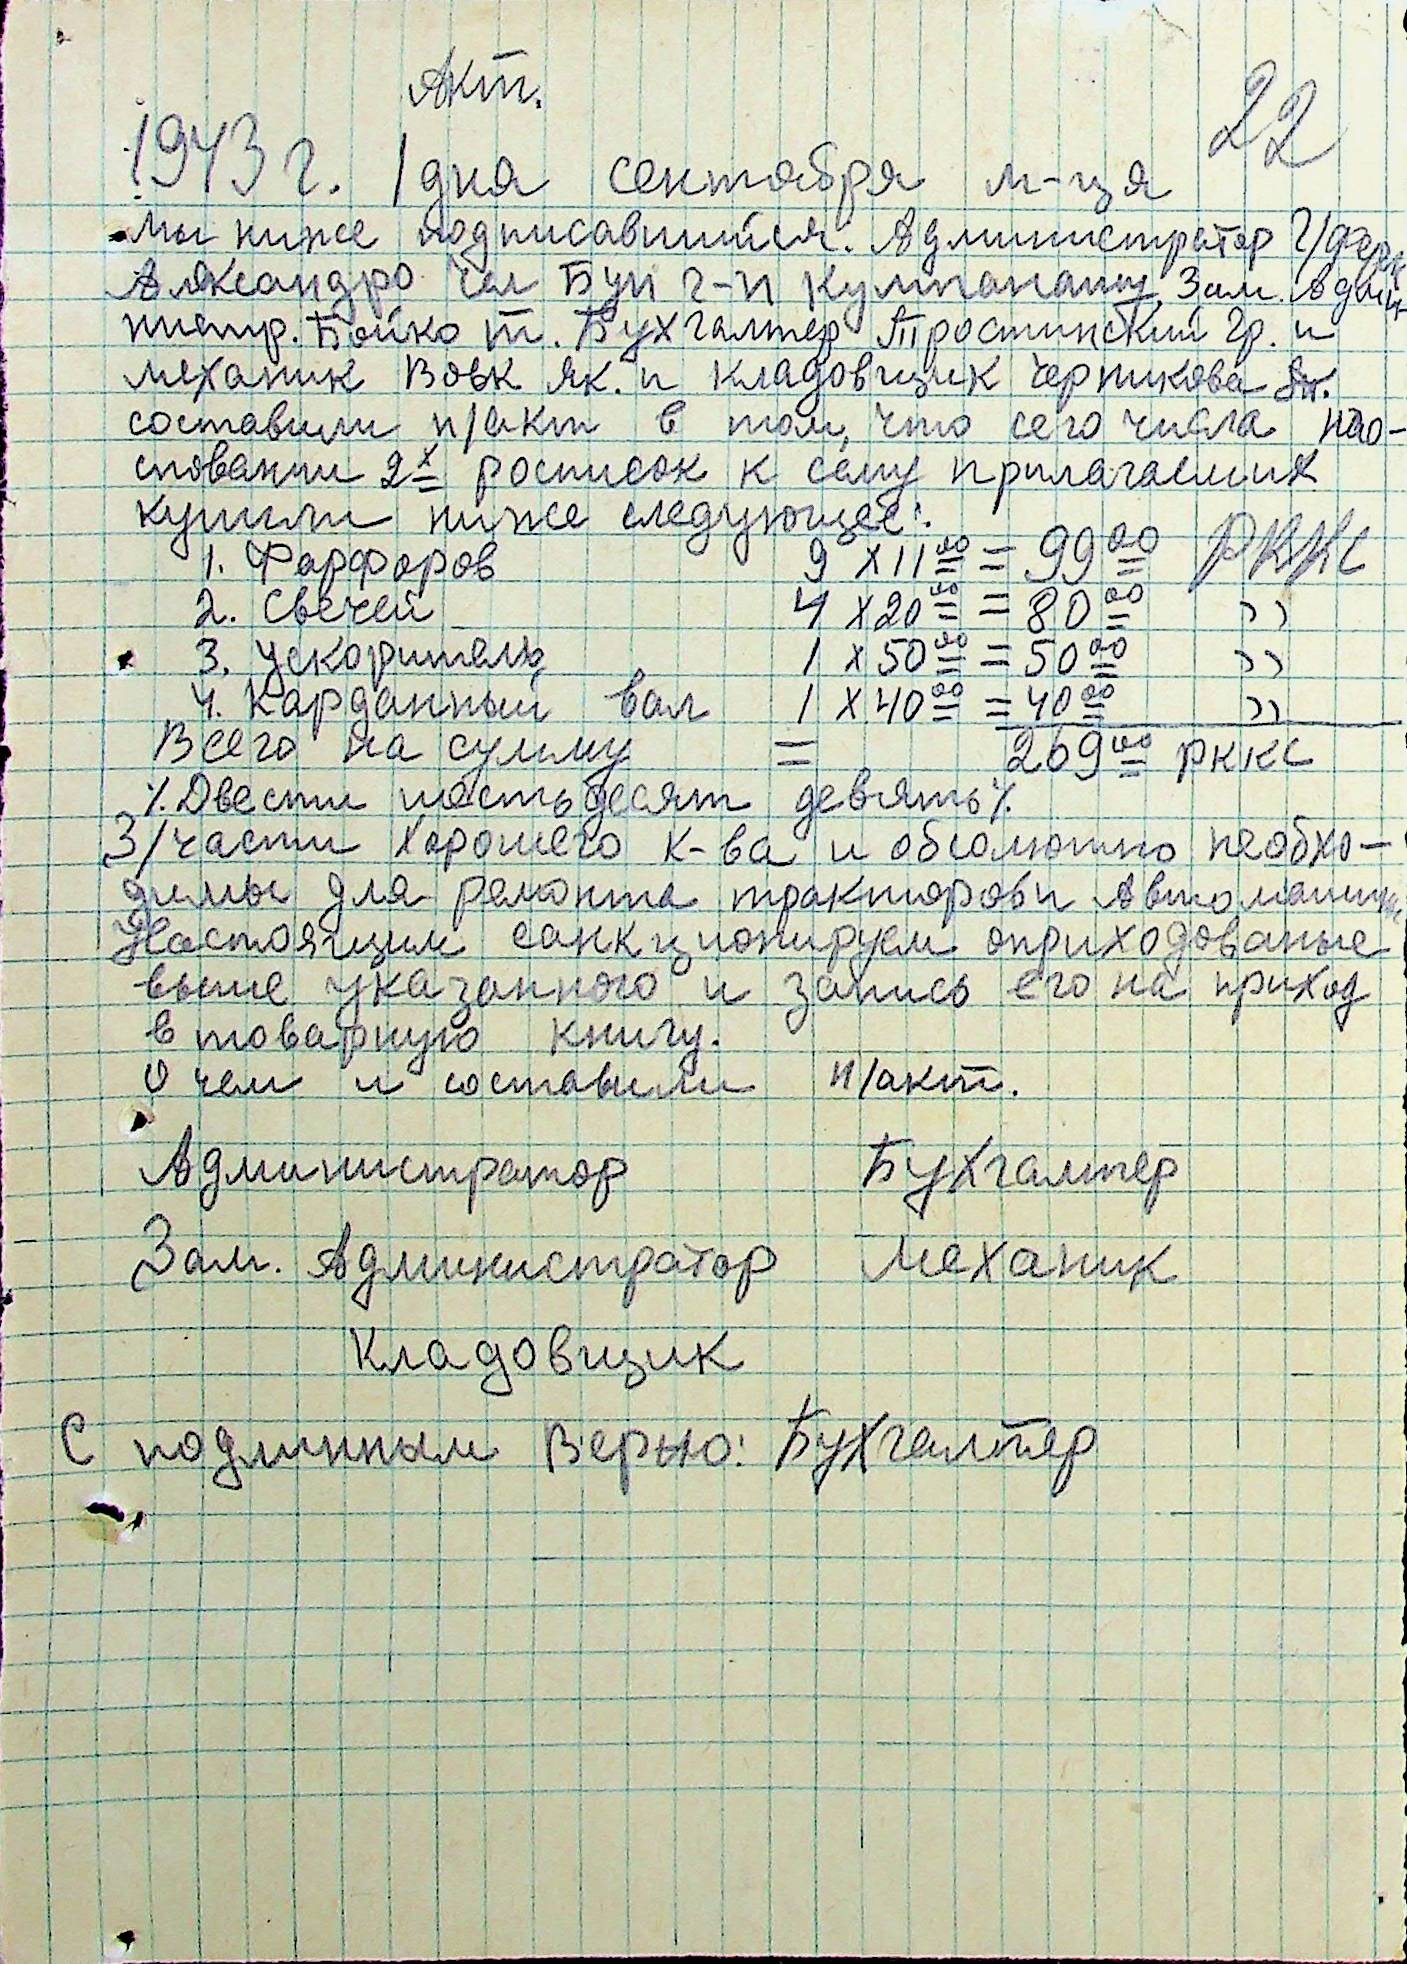 Акт.
22
1943 г. 1 дня сентября м-ця
мы ниже подписавшийся. Администратор Г/ферм
Александро Чел Бун г-н Кулипанашу, Зам. Админ
нистр. Бойко Т. Бухгалтер Тростинский Гр. и
механик Вовк Як. и кладовщик Черникова
составили н/акт в том, что сего числа нао-
сновании 2х росписок к сему прилагаемих
купили ниже следующее:
1. Фарфоров 9 х 11 00 = 99 00 РККС
2. Свечей 4 х 20 00 = 80 00 ))
3. Ускоритель 1 х 50 00 = 50 00 ))
4. Карданный вал 1 х 40 00 = 40 00 ))
Всего на сумму = 269 00 РККС
%. Двести шестьдесят девять %.
З/части хорошего к-ва и обсолютно необхо-
димы для ремонта тракторов и Автомашин
Настоящим санкционируем оприходованые
выше указанного и запись его на приход
в товарную книгу.
О чем и составили н/акт.
Администратор Бухгалтер
Зам. Администратор Механик
Кладовщик
С подлинным Верно: Бухгалтер